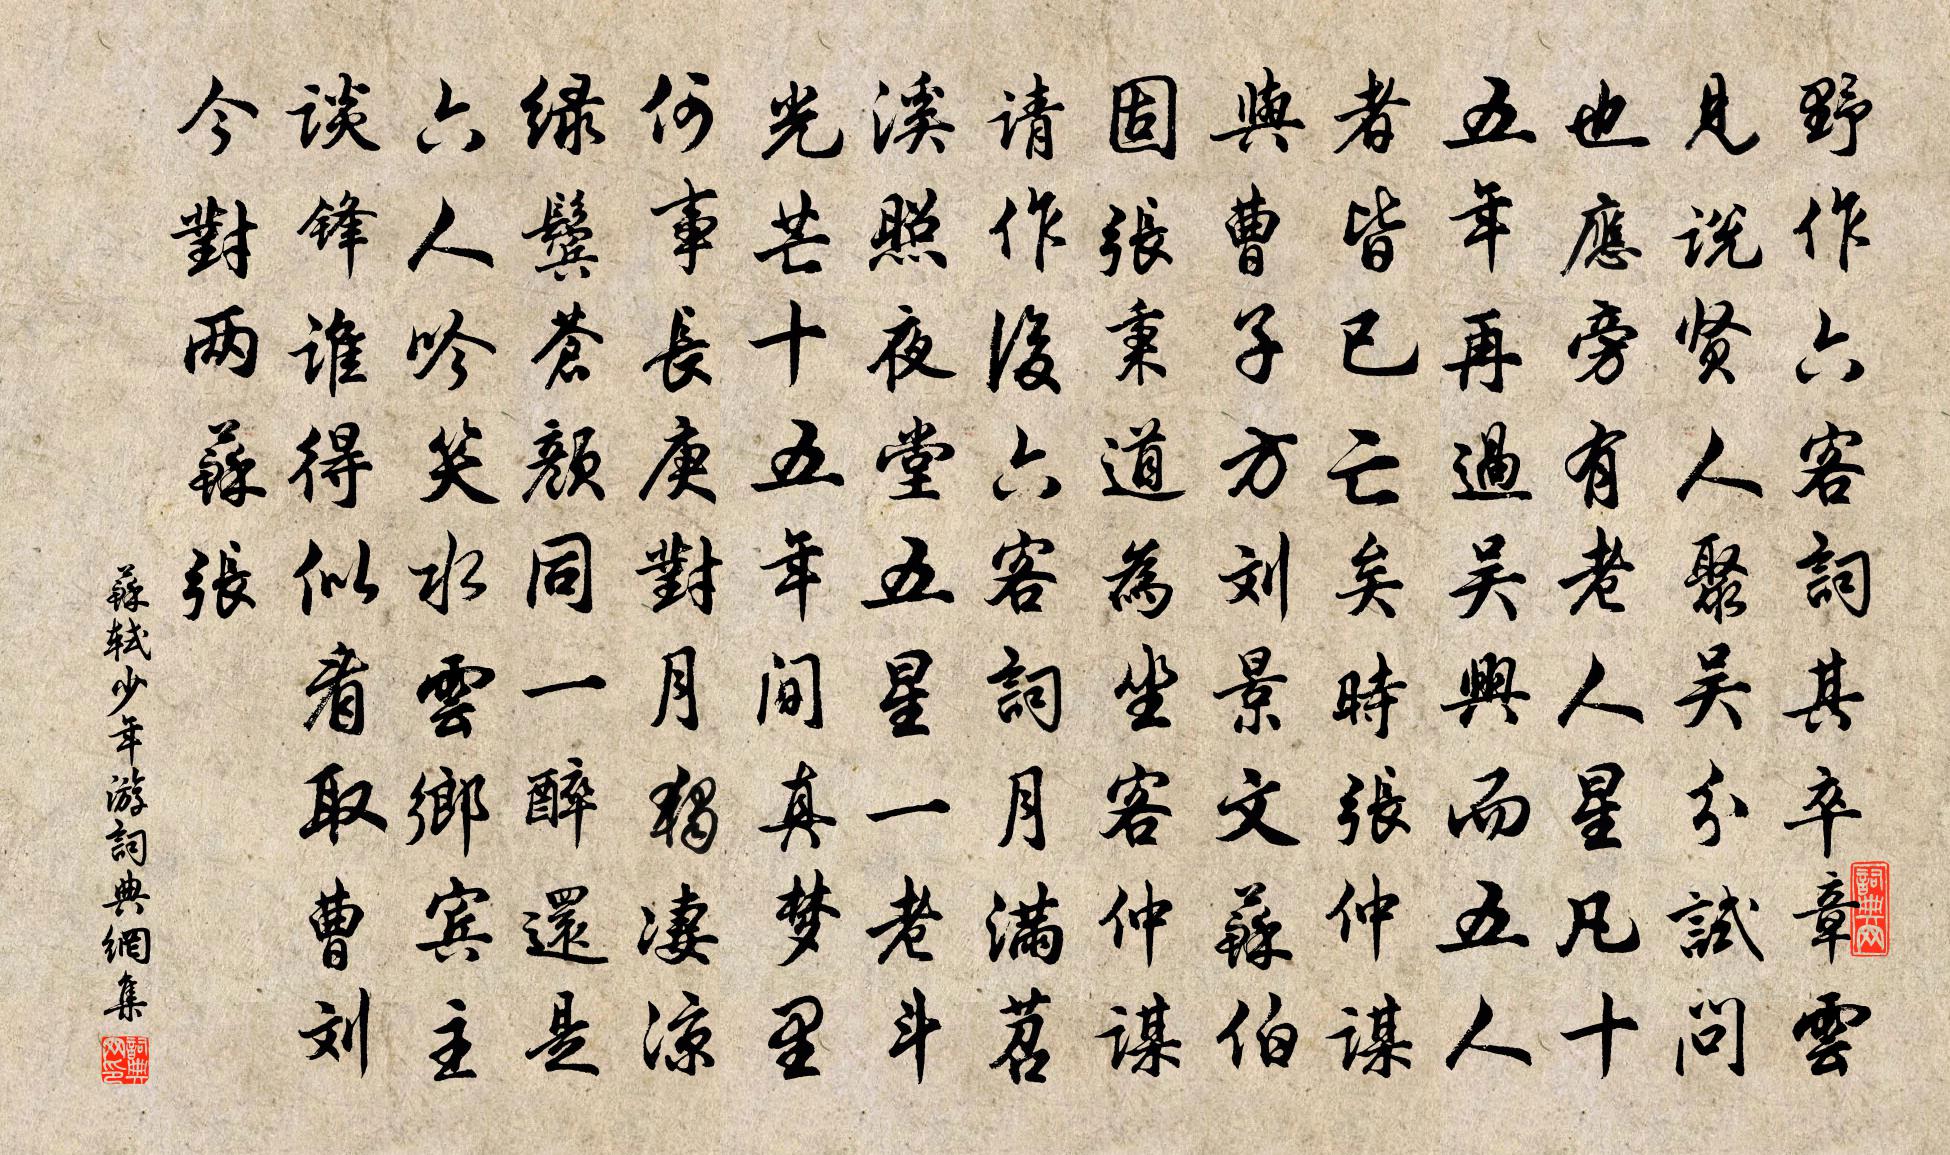 野作六客詞其卒章雲
見说贤人聚吴分試問
也應旁有老人星凡十
五年再過吴興而五人
者皆已亡矣時張仲謀
與曹子方刘景文蘇伯
固張秉道為坐客仲謀
请作後六客詞月满苕
溪照夜堂五星一老斗
光芒十五年间真梦里
何事長庚對月獨凄凉
绿鬓蒼顔同一醉還是
六人吟笑水雲鄉宾主
谈锋谁得似看取曹刘
今對两蘇張
蘇轼少年游詞典網集
詞典网
詞典网印